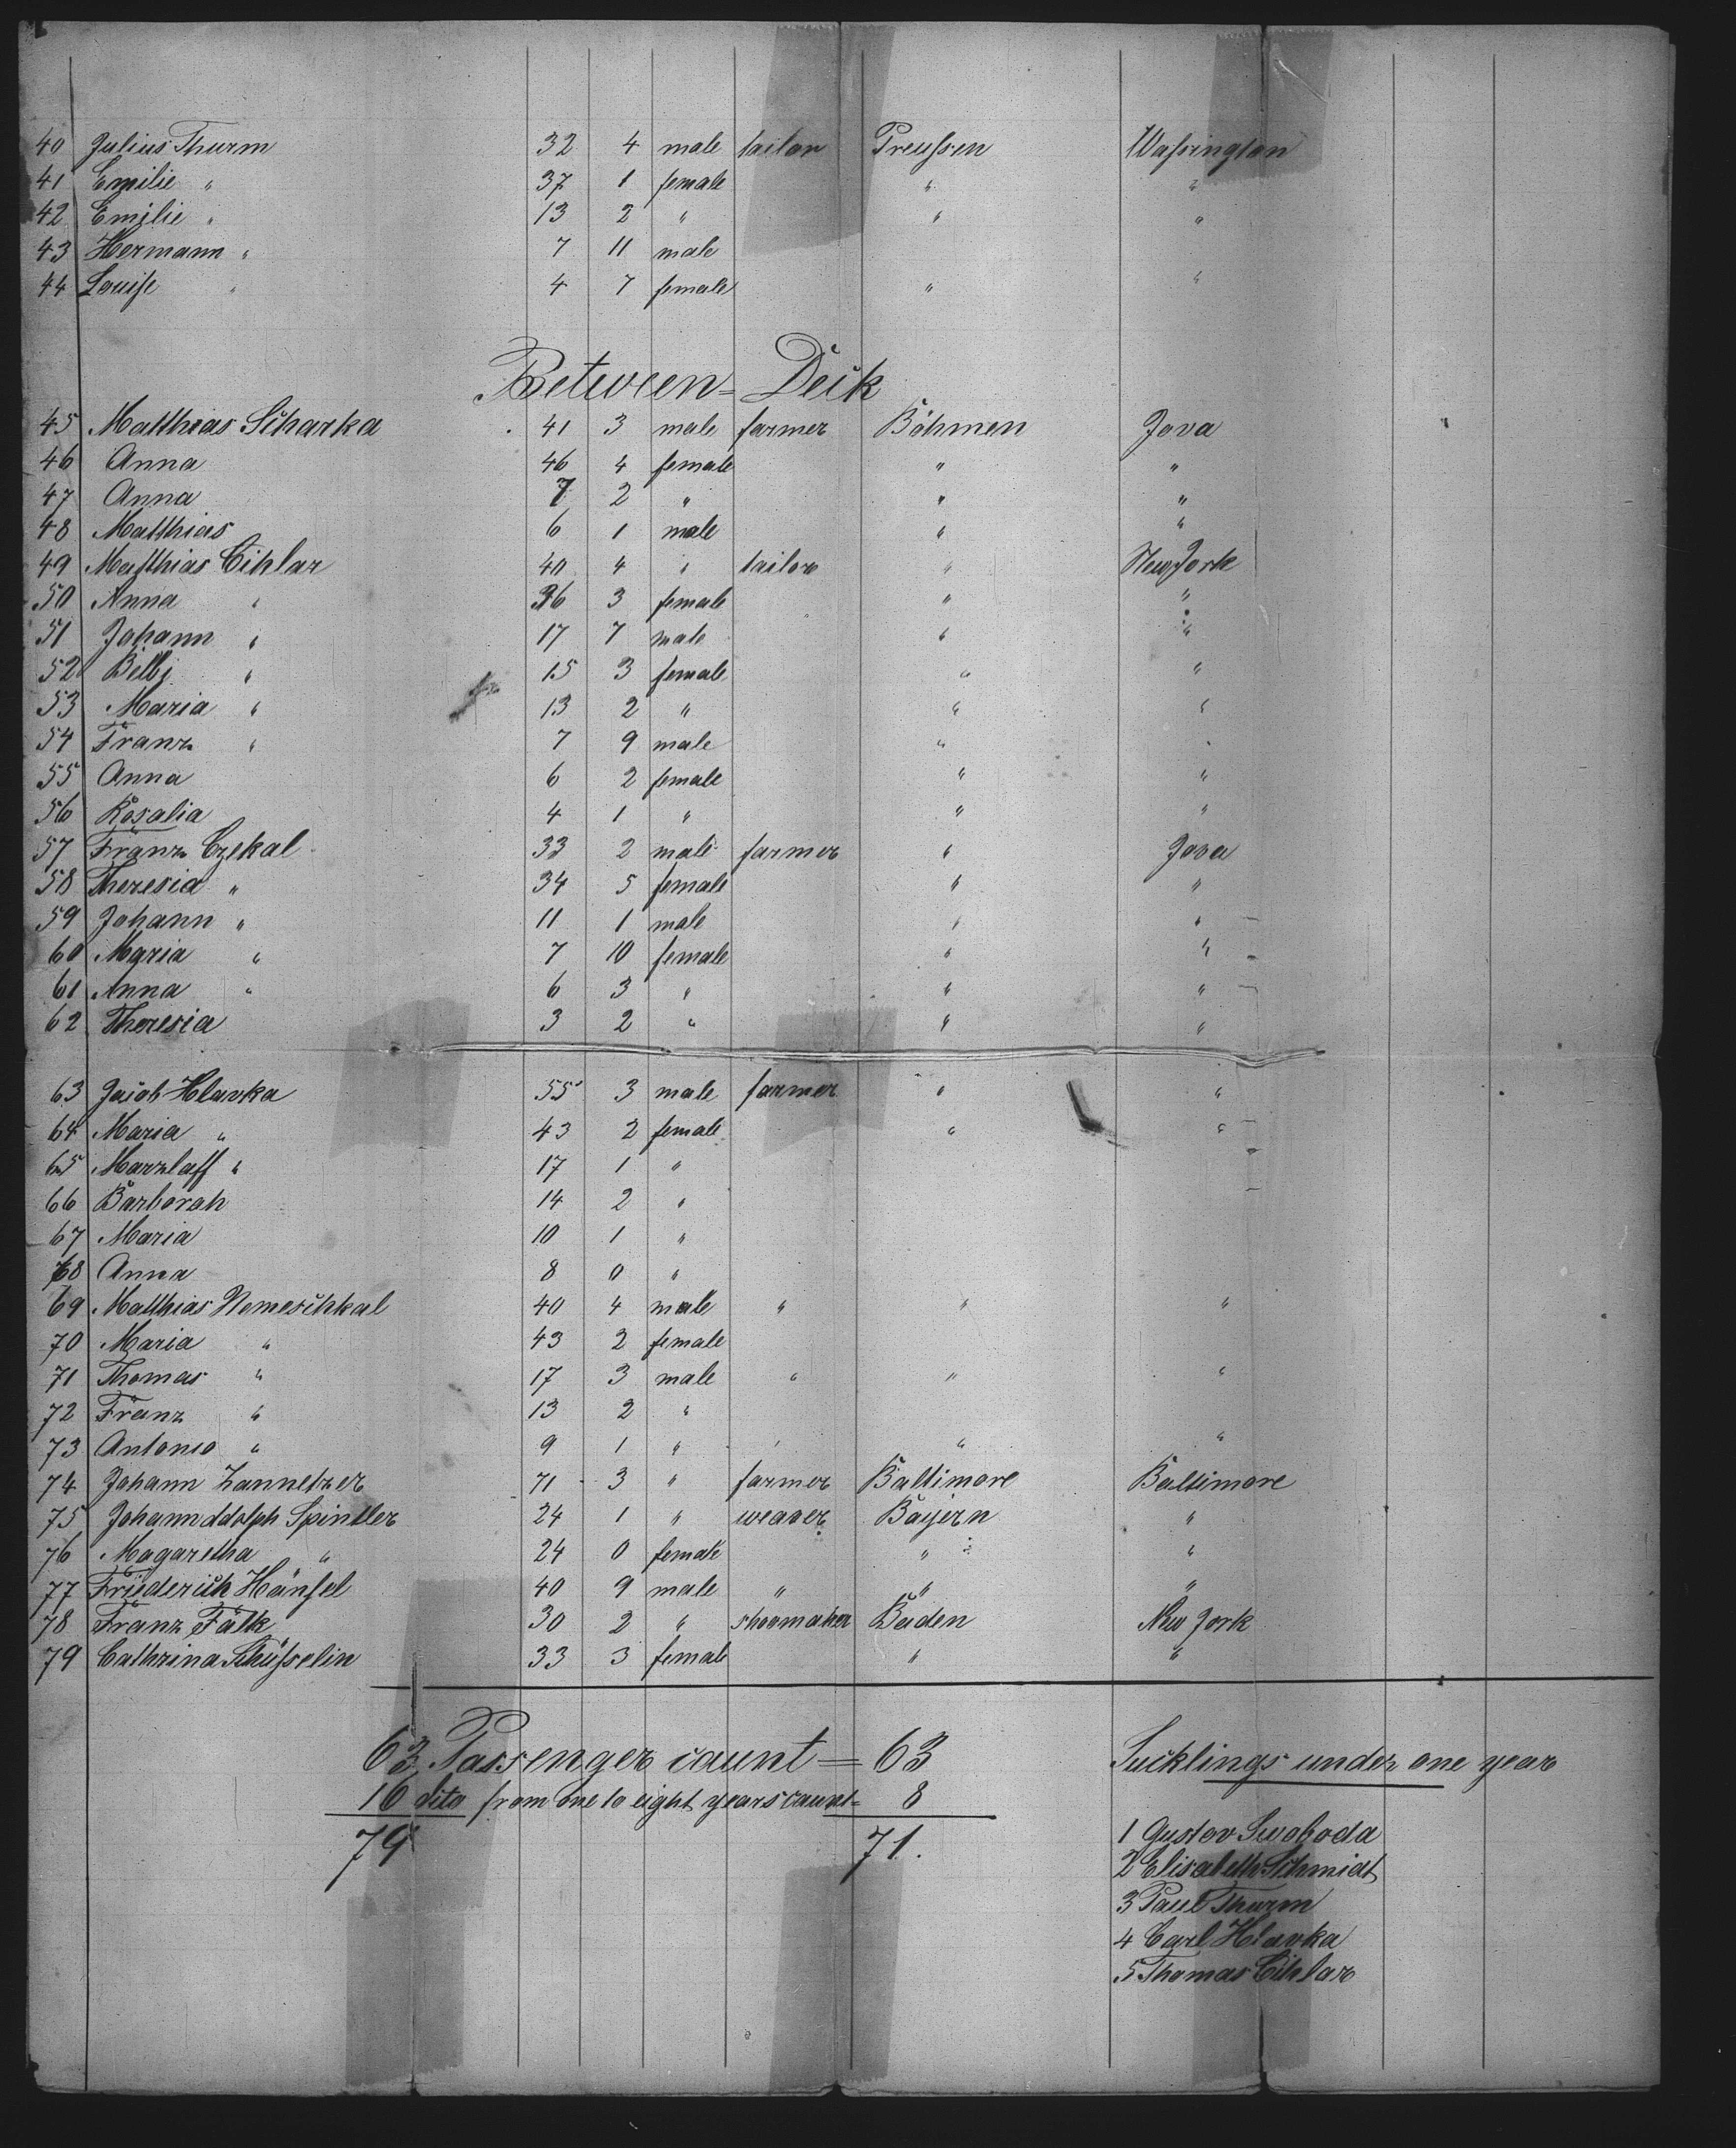 40 Julius Thurm 32 4 male tailor Preußen Waßington
41 Emilie " 37 1 female " "
42 Emilie " 13 2 " " "
43 Hermann " 7 11 male
44 Louise " 4 7 female " "
Between-Deck
45 Matthias Scharka 41 3 male farmer Böhmen Jova
46 Anna 46 4 female " "
47 Anna 7 2 " " "
48 Matthias 6 1 male " "
49 Matthias Cihlar 40 4 " tailor " New Jork
50 Anna " 36 3 female " "
51 Johann " 17 7 male " "
52 " 15 3 female " "
53 Maria " 13 2 " " "
54 Franz " 7 9 male " "
55 Anna 6 2 female " "
56 Rosalia 4 1 " " "
57 Franz Czekal 33 2 male farmer " Jova
58 Theresia " 34 5 female " "
59 Johann " 11 1 male " "
60 Maria " 7 10 female " "
61 Anna " 6 3 " " "
62 Theresia 3 2 " " "
63 Jacob Hlavka 55 3 male farmer " "
64 Maria " 43 2 female " "
65 Marzlaff " 17 1 "
66 Barborah 14 2 "
67 Maria 10 1 "
68 Anna 8 0 "
69 Matthias Nemeschkal 40 4 male " " "
70 Maria " 43 2 female
71 Thomas " 17 3 male " " "
72 Franz " 13 2 "
73 Antonio " 9 1 " " " "
74 Johann Zannetzer 71 3 " farmer Baltimore Baltimore
75 Johann Adolph Spindler 24 1 " weaver Bayern "
76 Magaretha " 24 0 female " "
77 Friederich Hänsel 40 9 male " " "
78 Franz Falk 30 2 " shoomaker Baden New Jork
79 Cathrina Schüsselin 33 3 female " "
63 Passenger count = 63
16 dito from one to eight years count = 8
79 71.
Sucklings under one year
1 Gustav Swoboda
2 Elisabeth Schmidt
3 Paul Thurm
4 Carl Hlavka
5 Thomas Cihlar